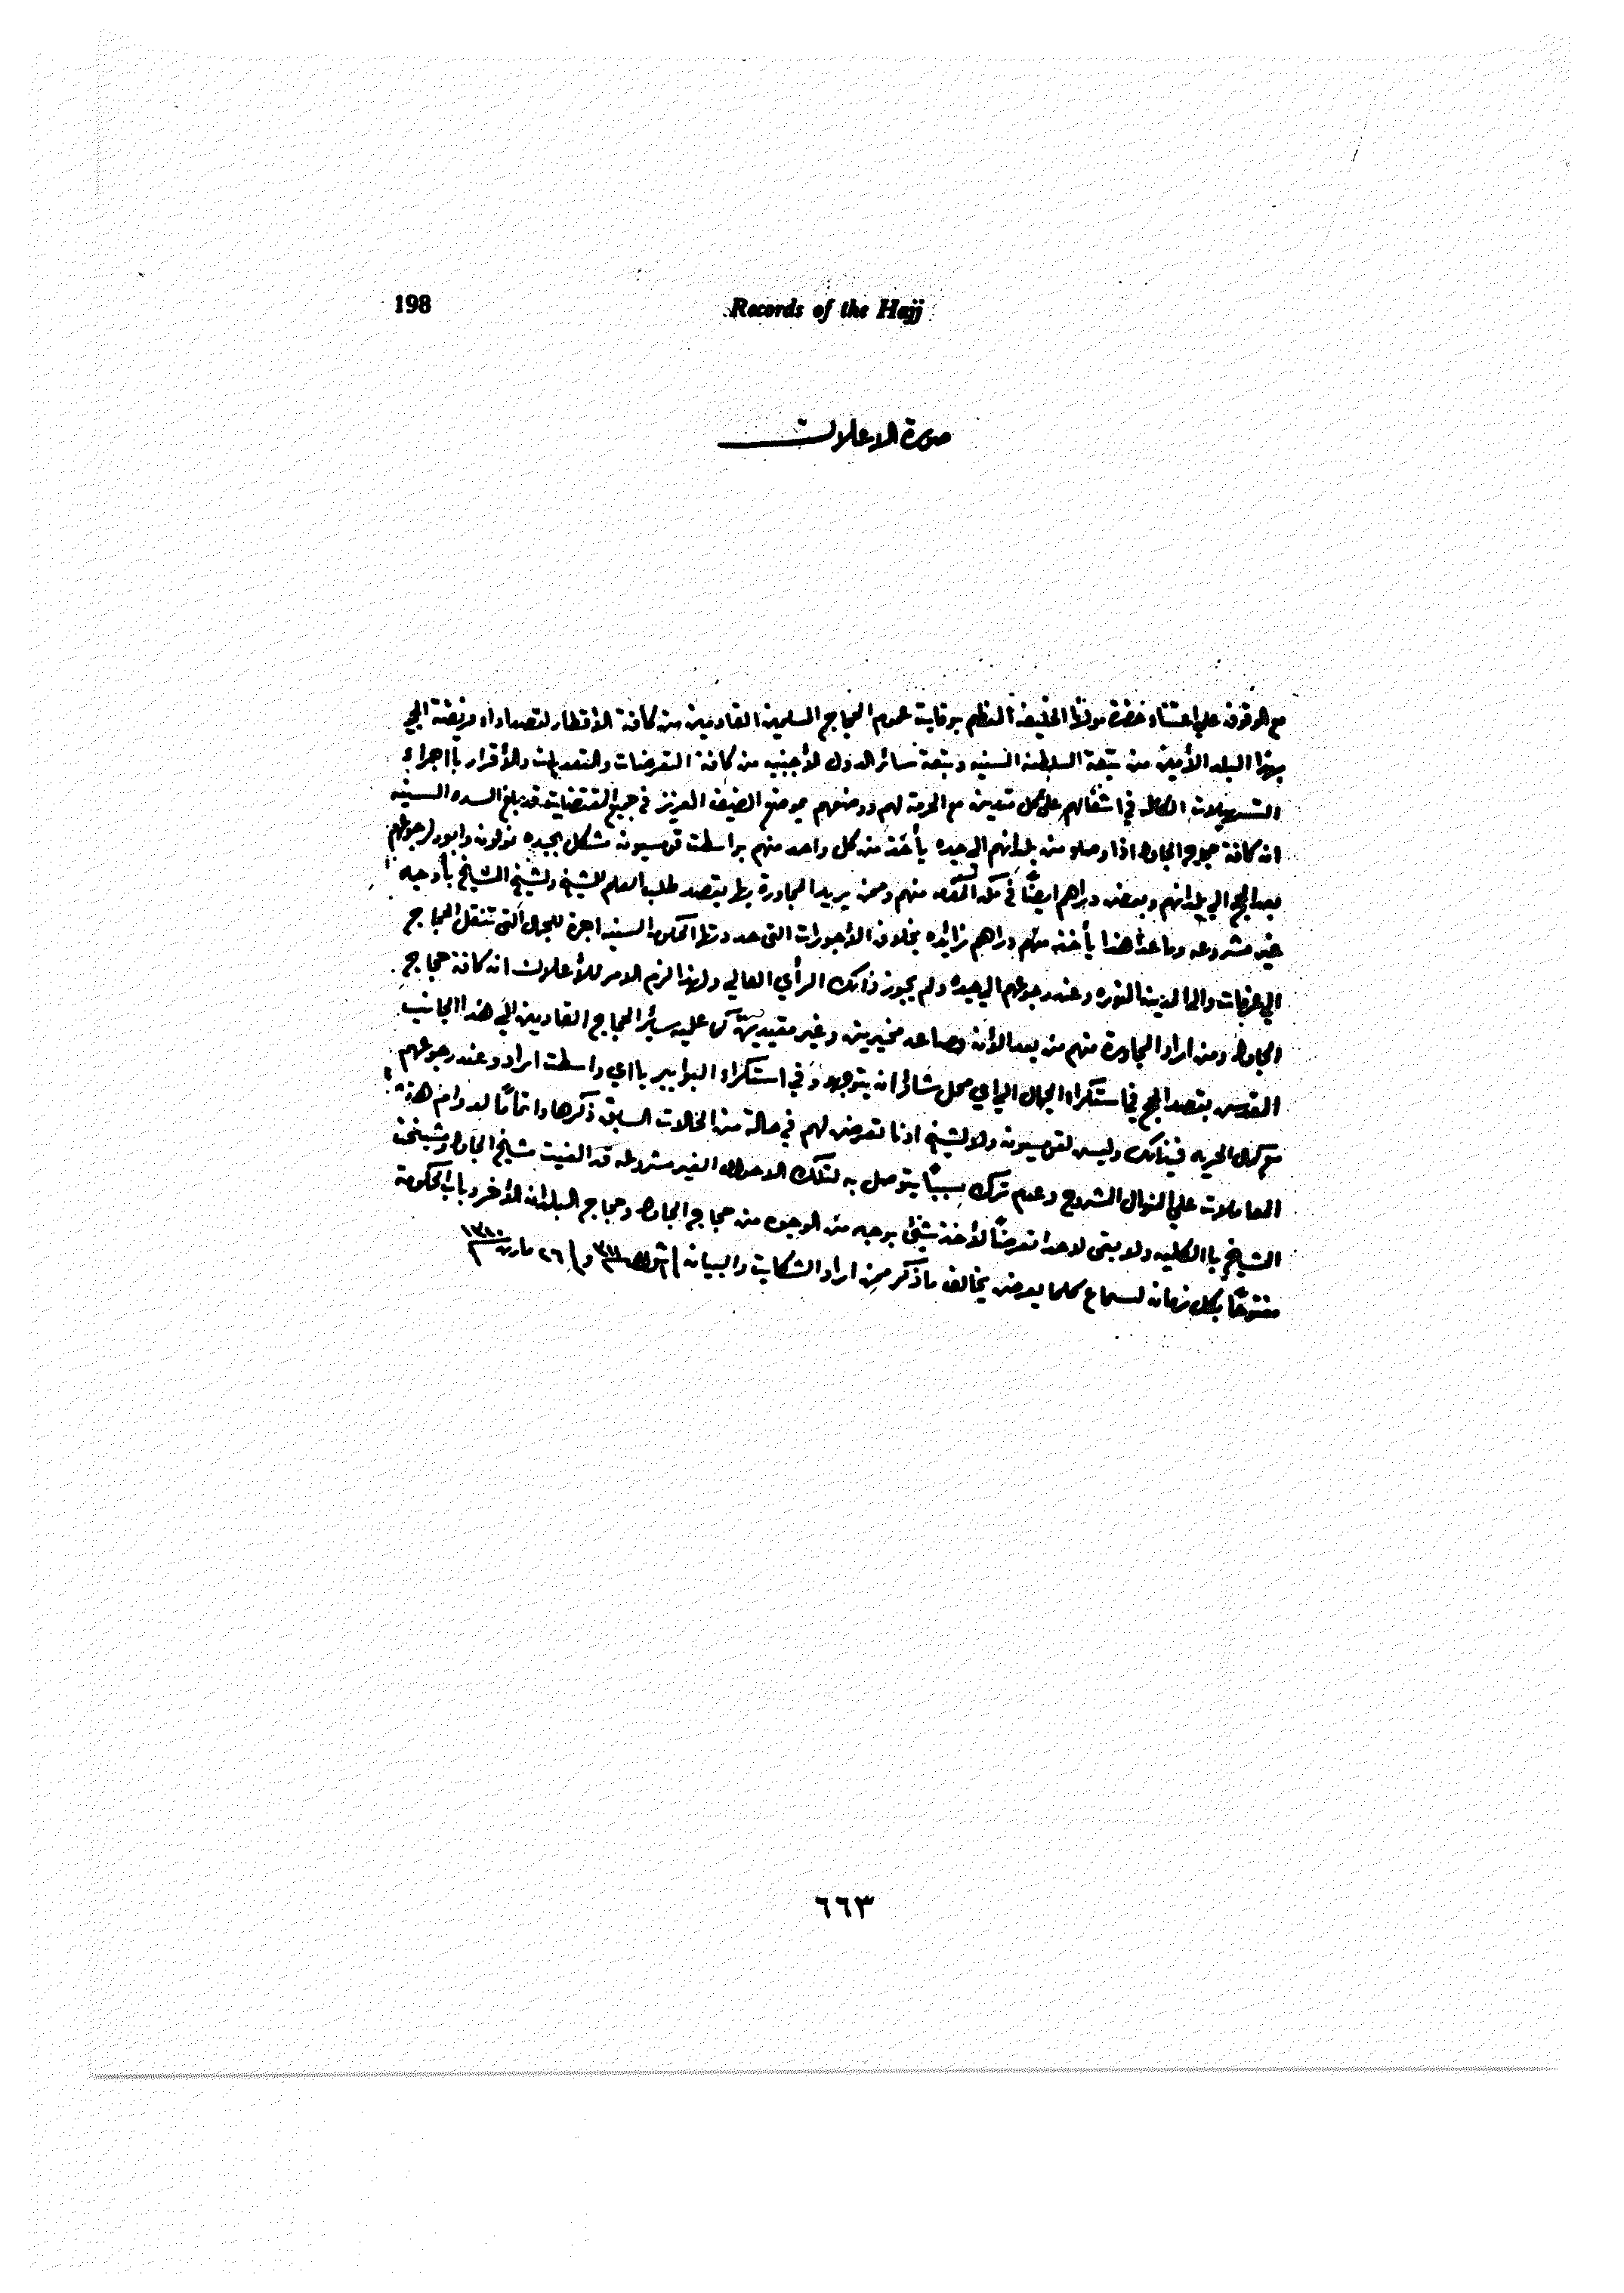 198
Records of the Hajj
صورة الاعلان
مع الوقوف على اعتناء حضرة مولانا الخليفة المعظم بوقاية عموم الحجاج المسلمين القادمين من كافة الأقطار لقصد اداء فريضة الحج
بهذا البلد الأمين من تبعة السلطنة السنيه وتبعة سائر الدول الأجنبيه من كافة التعرضات والتعديات والأقرار بااجراء
التسهيلات الكامله في اشغالهم على كل متعين مع الحرمة لهم ووضعهم موضع الضيف العزيز في جميع المقتضيات قد بلغ السده السنيه
ان كافة حجاج الجاوه اذا وصلو من بلدانهم الى جده يأخذ من كل واحد منهم بواسطت قومسيون مشكل بجده نولون وابور لرجوعهم
بعد الحج الى بلدانهم وبعض دراهم ايضاً في مكة المكرمه منهم وممن يريد المجاورة بها بقصد طلب العلم للشيخ ولشيخ الشايخ بأوجه
غير مشروعه وما عدا هذا يأخذ منهم دراهم زائده بخلاف الأجورات التى حددتها الحكومه السنيه اجرة للجمال التى تنقل الحجاج
الى عرفات والى المدينه المنوره وعند رجوعهم الى جده ولم يجوز ذالك الرأي العالي ولهذا لزم الامر للأعلان ان كافة حجاج
الجاوه ومن اراد المجاورة منهم من بعد الأن وصاعد مخيرين وغير مقيدين كما عليه سائر الحجاج القادمين الى هذا الجانب
المقدس بقصد الحج في استكراء الجمال الى اي محل شائو ان يتوجهو وفي استكراء البوابير بااي واسطت ارادو عند رجوعهم
مع كمال الحريه في ذالك وليس لقومسيون ولا لشيخ ادنا تعرض لهم في حالة من الحالات السابق ذكرها واتماماً لدوام هذه
المعاملات على المنوال المشروح وعدم ترك سبباً يتوصل به لتلك الاحوال الغير مشروعه قد الغيت مشايخ الجاوه ومشيخة
الشايخ باالكليه ولا يبقى لاحد تعرضاً لأخذ شيئ بوجه من الوجوه من حجاج الجاوه وحجاج البلدان الأخر وباب الحكومة
مفتوحاً بكل زمان لسماع كلما يعرض يخالف ماذكر ممن اراد الشكاية والبيان شوال و ٢٦ مارس
٦٦٣